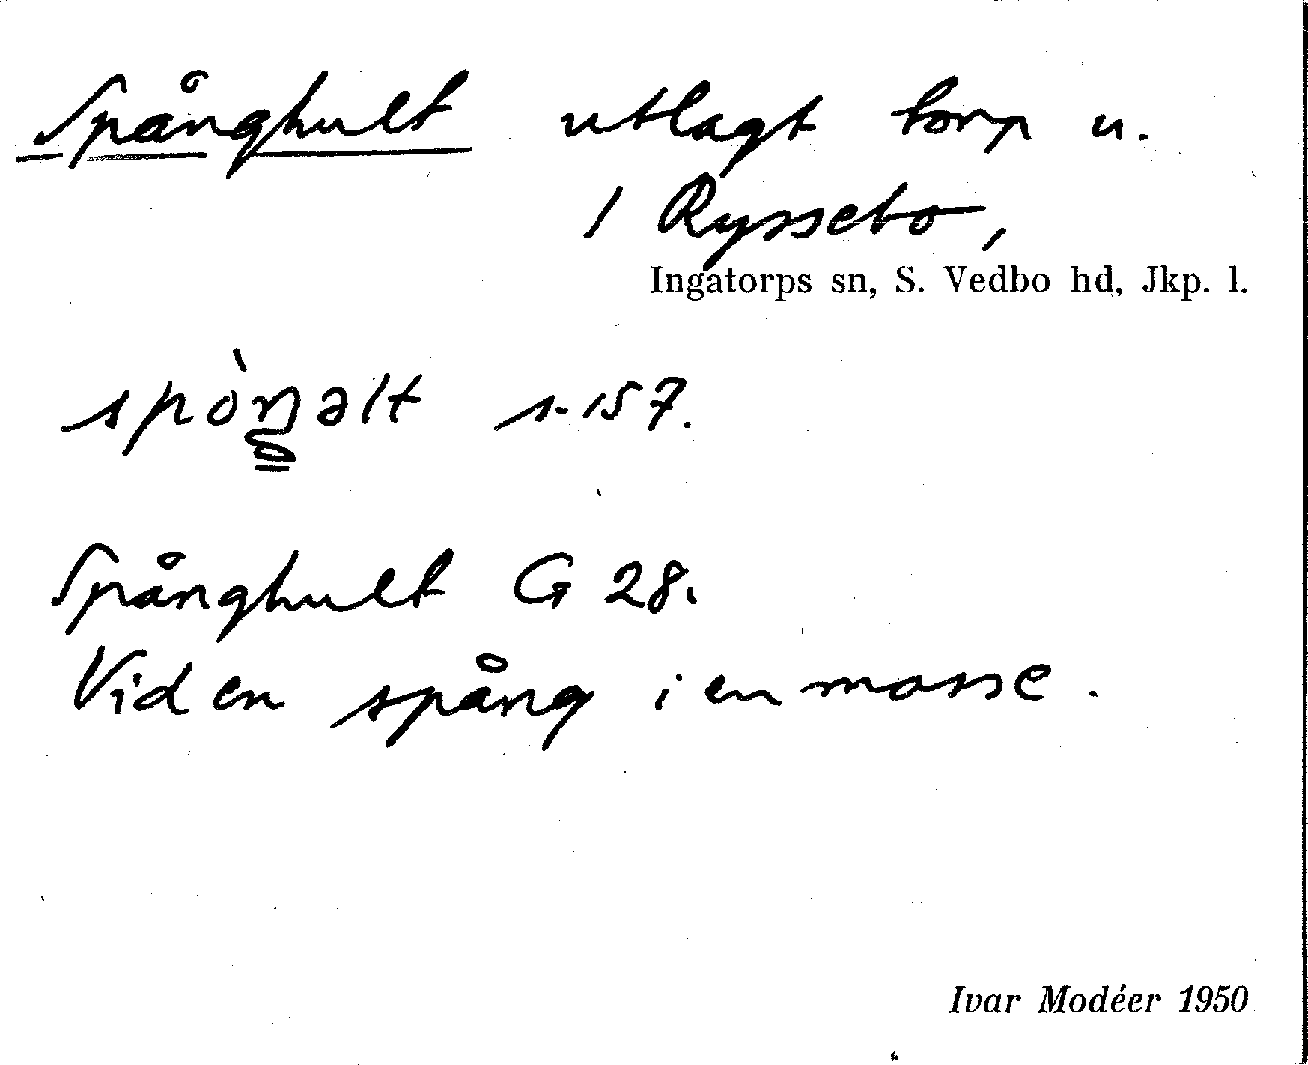 Spånghult utlagt torp u.
1 Ryssebo,
Ingatorps sn, S. Vedbo hd, Jkp. l.
spòŋəlt s. 157.
Spånghult G 28.
Vid en spång i en mosse.
Ivar Modéer 1950